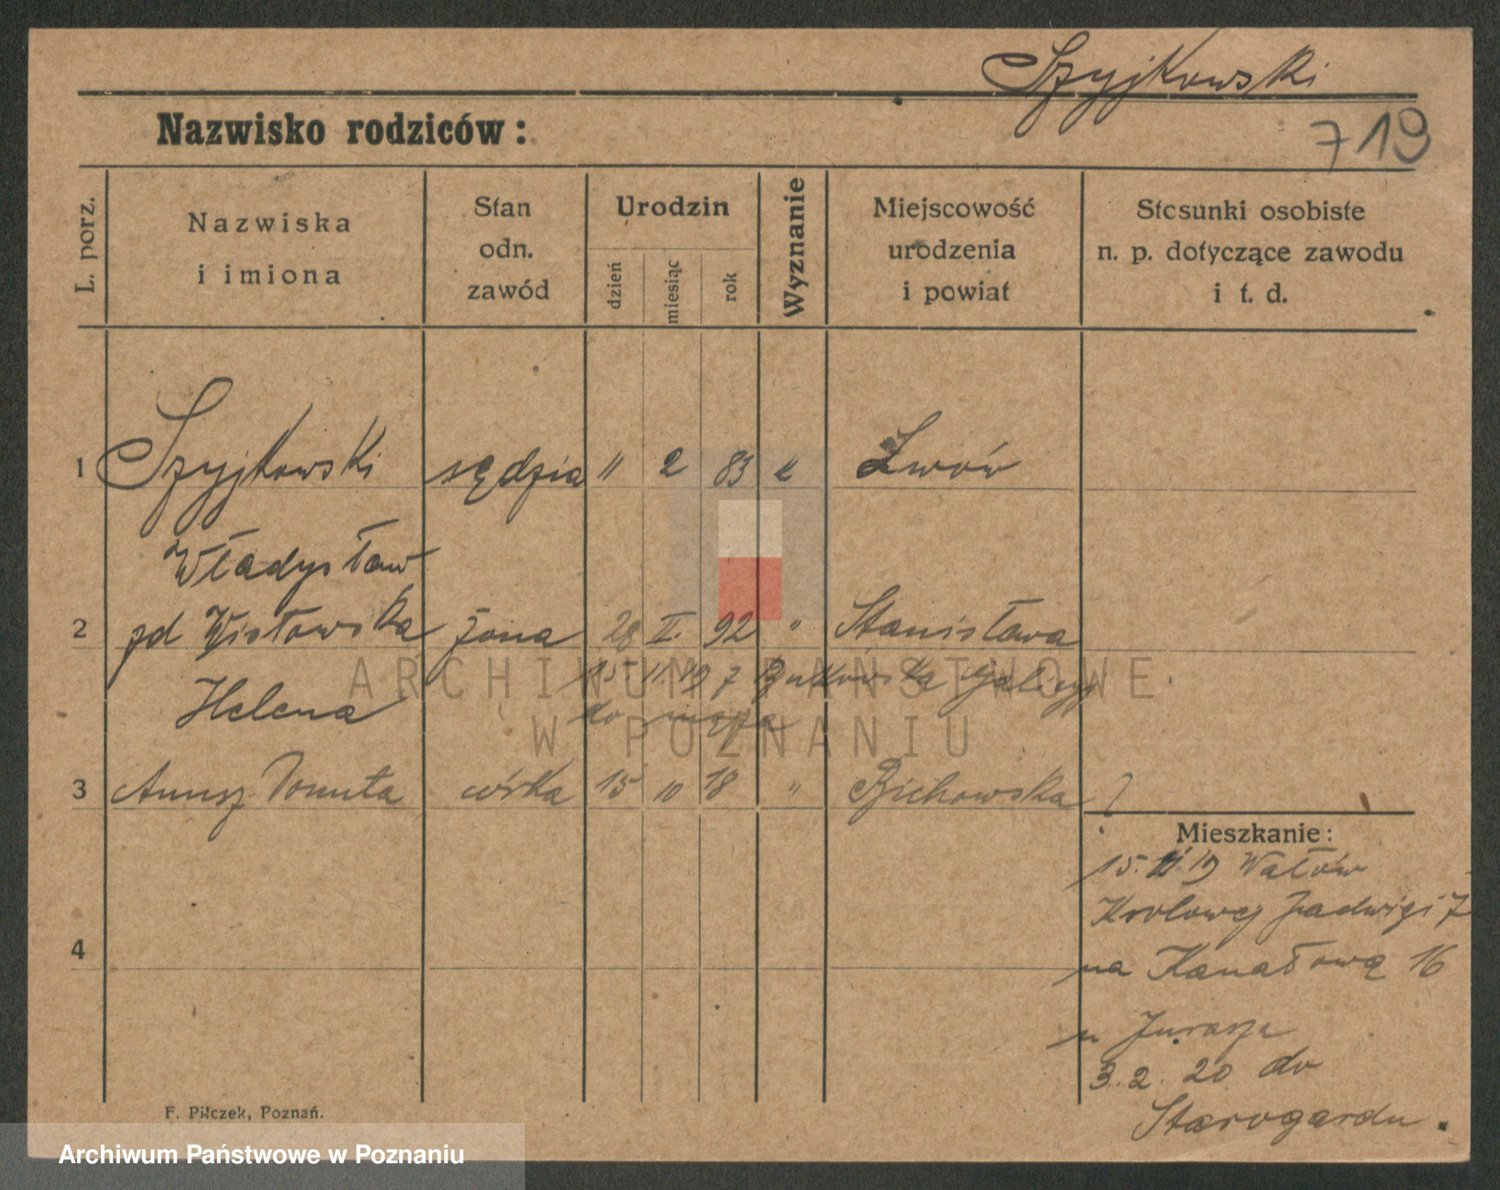 Szyjkowski
719
Nazwisko rodziców:
L. porz.
Nazwiska
i imiona
Stan
odn.
zawód
Urodzin
dzień
miesiąc
rok
Wyznanie
Miejscowość
urodzenia
i powiat
Stosunki osobiste
n. p. dotyczące zawodu
i t. d.
1 Szyjkowski sędzia 11 2 83 k Lwów
Władysław
2 zd Wisłowska żona 28 II. 92 " Stanisława
Helena 15 11.19 Bukowska Galicyj
do męża
3 Danuta córka 15 10 18 " Bichowska
Mieszkanie:
15. II. 19 Wałów
Krolowej Jadwigi 7
4
na Kanałową 16
u Jurasza
3. 2. 20 do
Starogardu.
F. Pilczek, Poznań.
ARCHIWUM PAŃSTWOWE
W POZNANIU
Archiwum Państwowe w Poznaniu